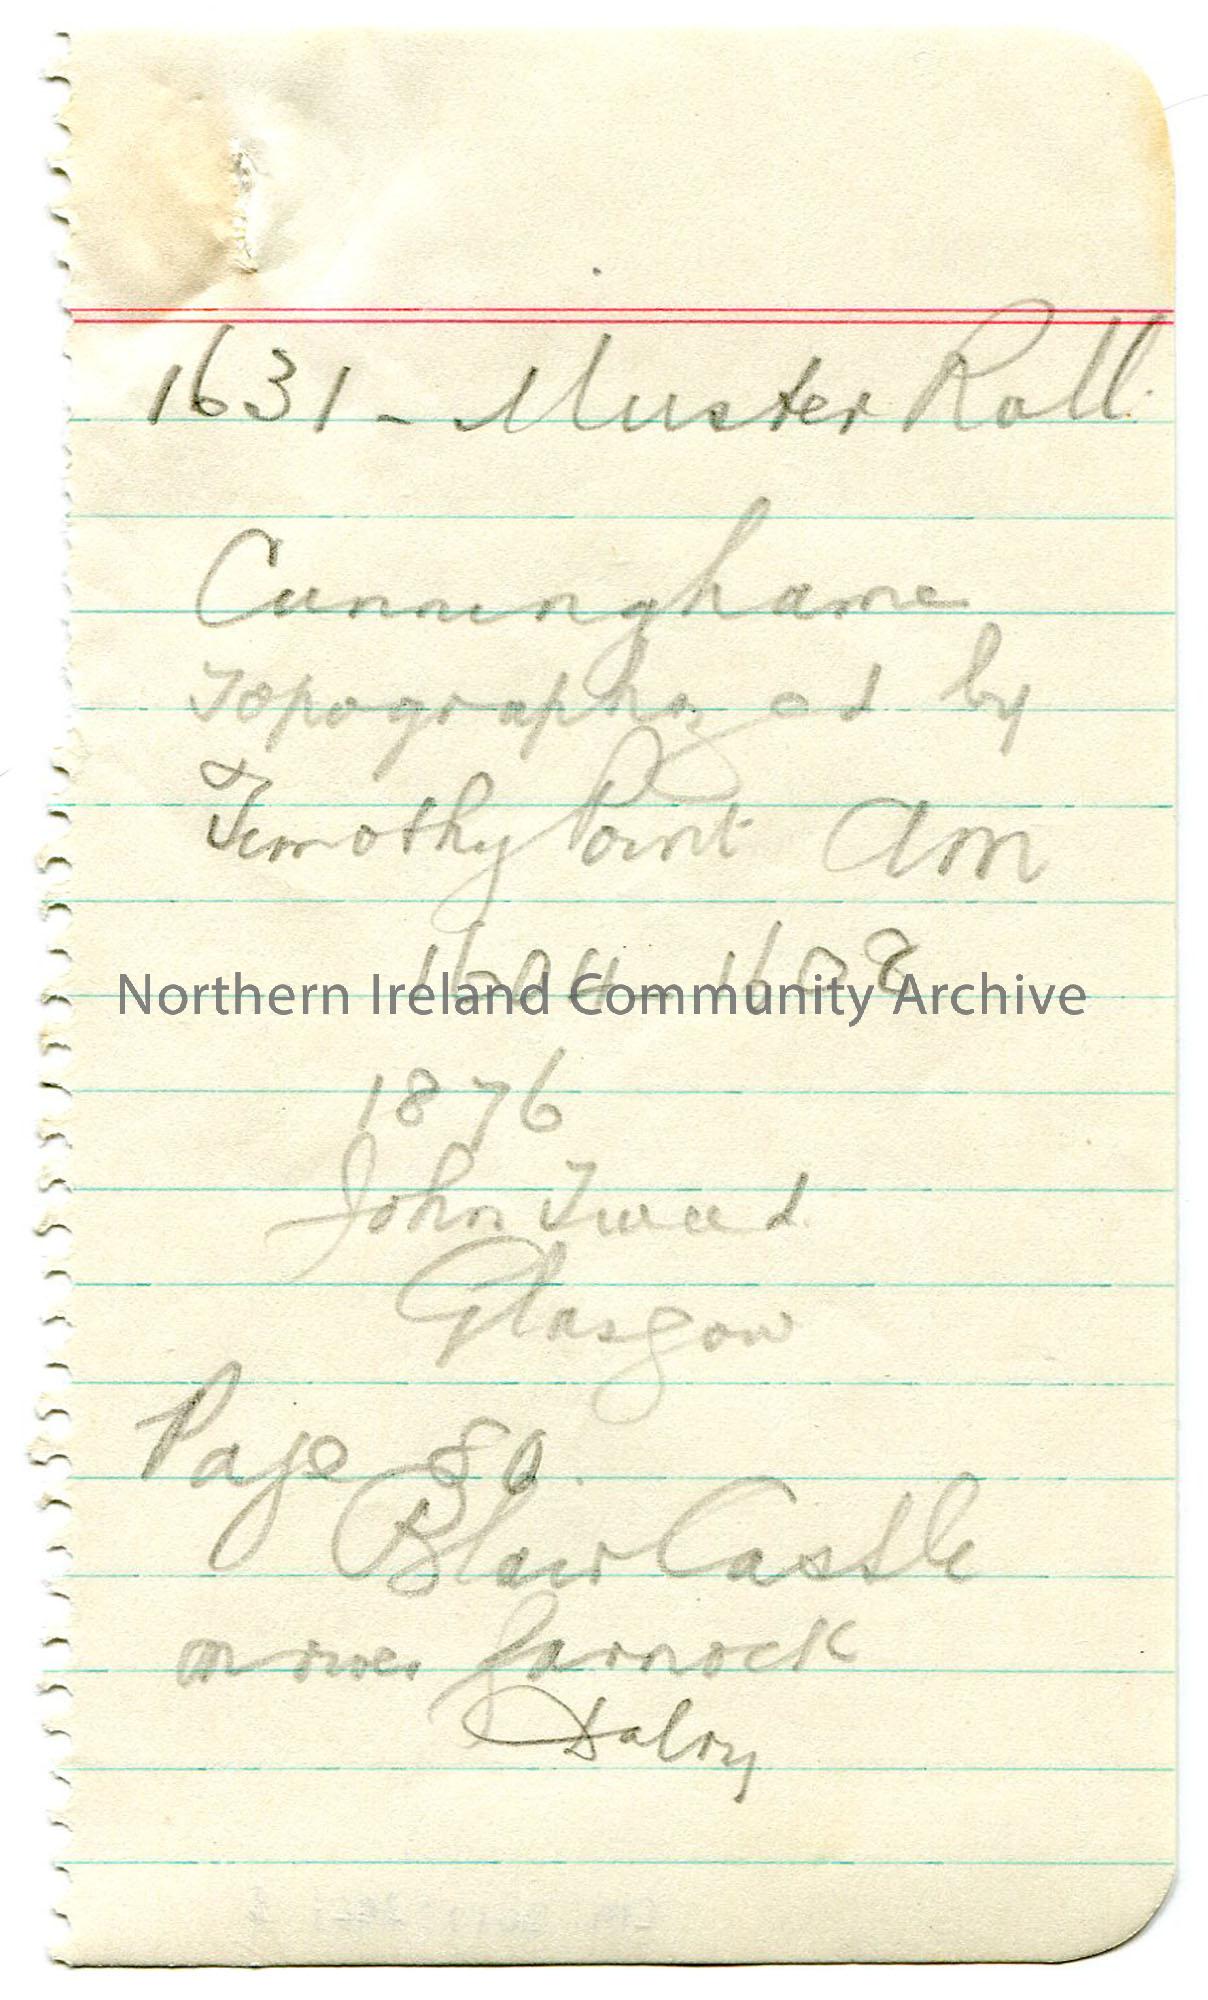 1631 - Muster Roll.
Cunninghame
Topographized by
Timothy Pont AM
1604 - 1608
Northern Ireland Community Archive
1876
John Tweed
Glasgow
Page 80.
Blair Castle
on river Garnock
Dalry